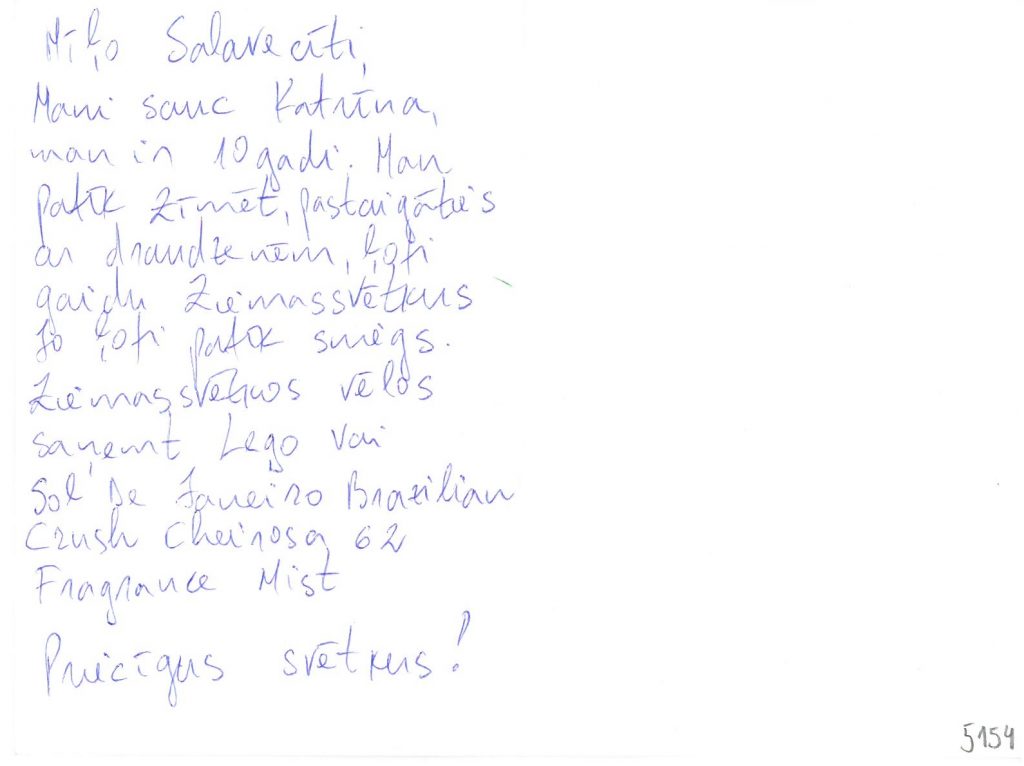 Mīļo Salavecīti,
Mani sauc Katrīna,
man ir 10 gadi. Man
patīk zīmēt, pastaigāties
ar draudzenēm, ļoti
gaidu Ziemassvētkus
jo ļoti patīk sniegs.
Ziemassvētkos vēlos
saņemt Lego vai
Sol De Janeiro Brazilian
Crush Cheirosa 62
Fragrance Mist
Priecīgus svētkus!
5154